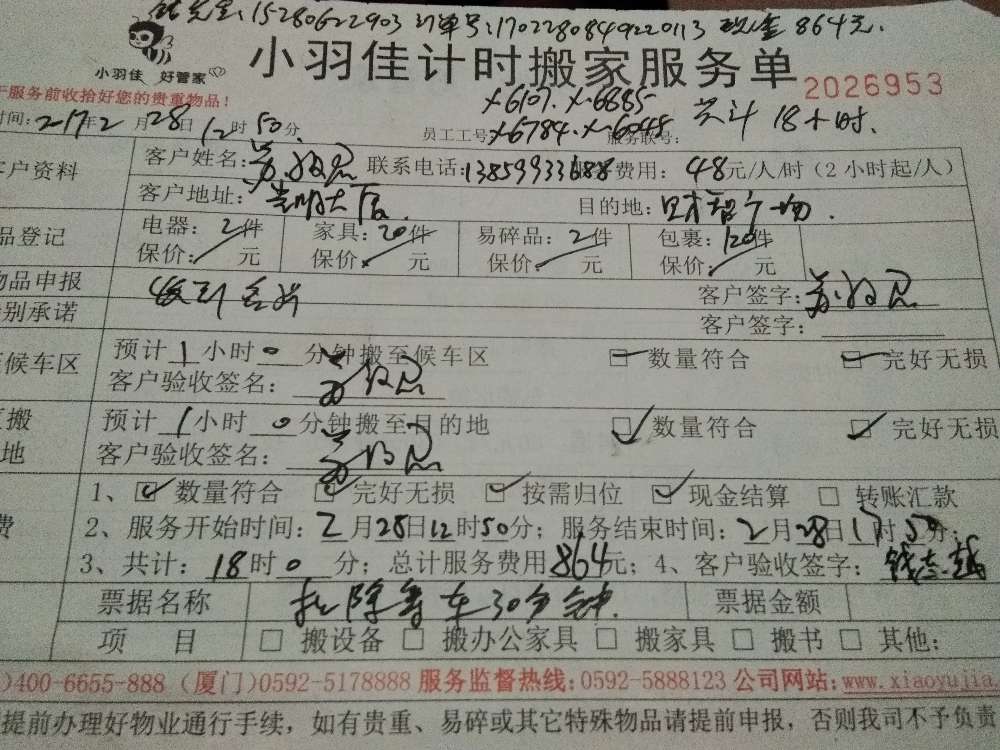 钱先生:15280622903 订单号:170228084922013 现金864元.
小羽佳 好管家
小羽佳计时搬家服务单
2026953
于服务前收拾好您的贵重物品!
X-6107. X-6885
时间:2017年2月28日12时50分
员工工号:X-6784. X-6048 服务联号: 共计18小时.
客户资料 客户姓名: 联系电话:13859933688 费用:48元/人/时(2小时起/人)
客户地址: 大厦. 目的地:财智广场.
品登记 电器:2件 家具:20件 易碎品:2件 包裹:120件
保价: 元 保价: 元 保价: 元 保价: 元
物品申报 客户签字:
别承诺 客户签字:
候车区 预计1小时0分钟搬至候车区 数量符合 完好无损
客户验收签名:
搬 预计1小时0分钟搬至目的地 数量符合 完好无损
地 客户验收签名:
1、 数量符合 完好无损 按需归位 现金结算 转账汇款
费 2、服务开始时间:2月28日12时50分;服务结束时间:2月28日17时50分;
3、共计:18时0分;总计服务费用864元;4、客户验收签字:钱志越
票据名称 扣除等车30分钟. 票据金额
项 目 搬设备 搬办公家具 搬家具 搬书 其他:
)400-6655-888 (厦门)0592-5178888 服务监督热线:0592-5888123 公司网站:www.xiaoyujia.
提前办理好物业通行手续,如有贵重、易碎或其它特殊物品请提前申报,否则我司不予负责